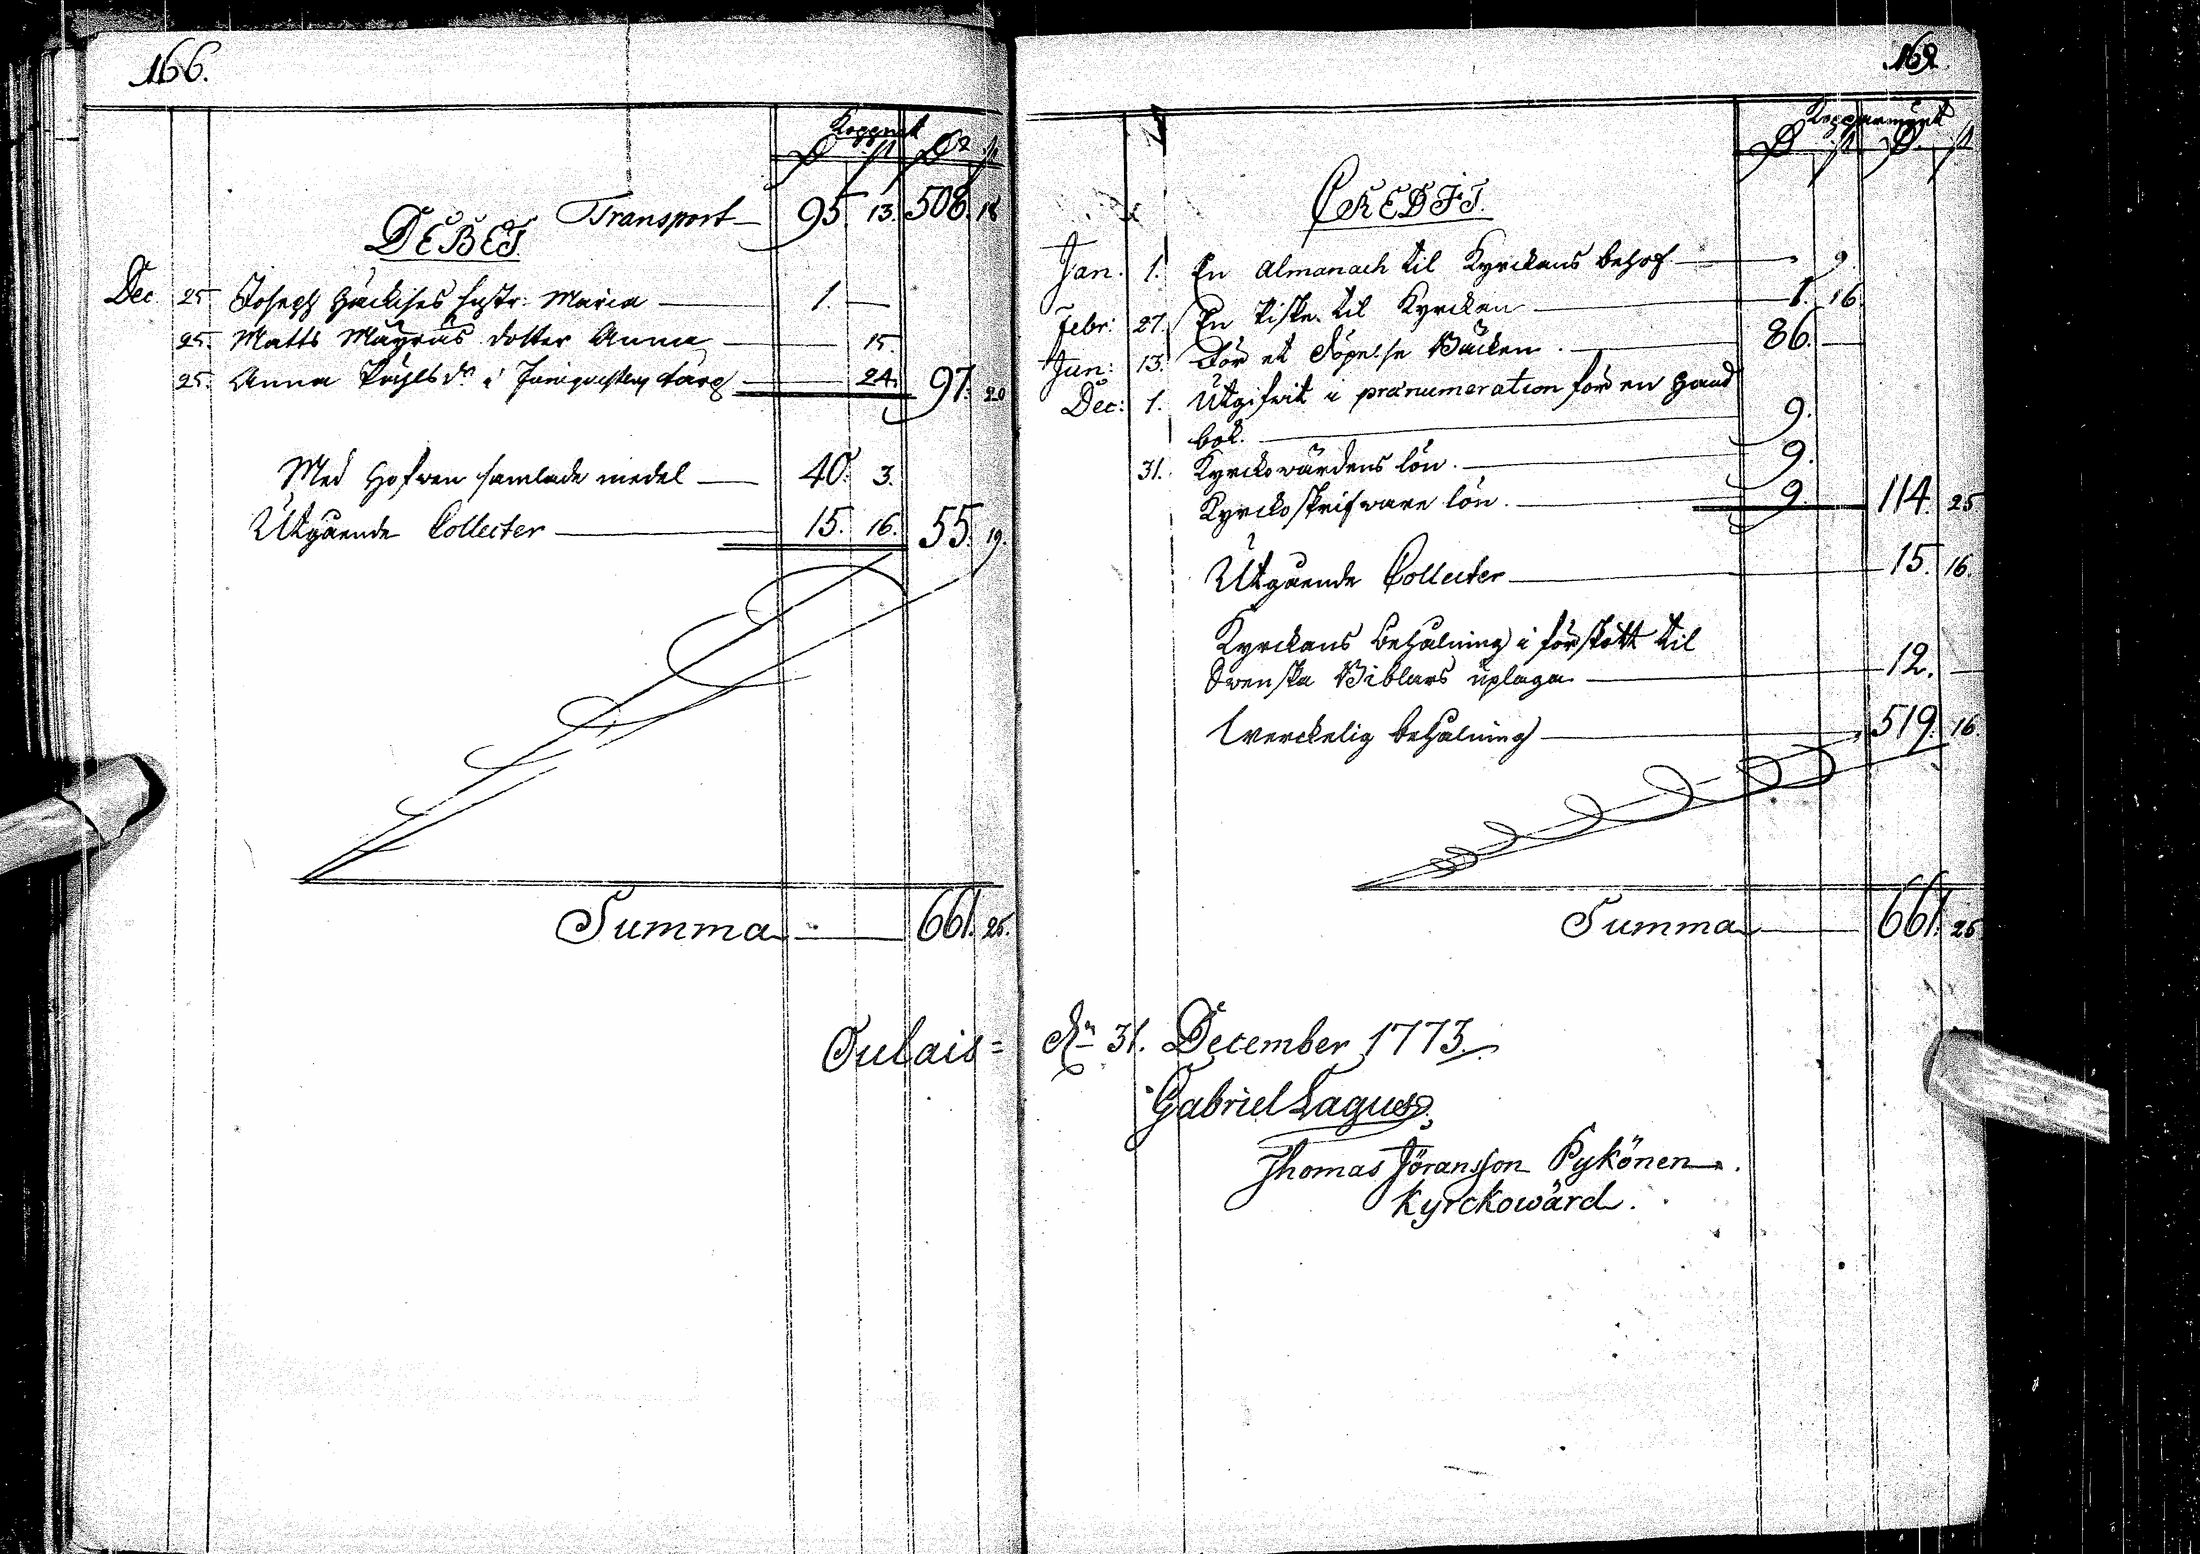 166.
Kopp.mt
D. S D. S
Transport 95. 13. 508. 18
DEBET.
Dec. 25. Joseph Häckises hustr: Maria 1. —
25. Matts Mayras dotter Anna 15.
25. Anna Påhlsdr i 24. 97. 20
Med Hofwen samlade medel 40. 3.
Utgående Collecter 15. 16. 55. 19.
Summa 661. 25.
Sulais =
Koppermynt
D. S D. S
CREDIT.
Jan. 1. En Almanach til Kyrckans behof 9
Febr: 27. En til Kyrckan 1. 16.
Jun: 13. För et Döpelse Bäcken 86. —
Dec: 1. Utgifwit i prænumeration för en Hand
bok. 9.
31. Kyrckowärdens lön. 9.
Kyrckoskrifware lön. 9. 114. 25
Utgående Collecter 15. 16.
Kyrckans behålning i förskott til
Swenska Biblars uplaga 12. —
Werckelig behålning 519. 16.
Summa 661. 25
dn 31. December 1773.
Gabriel Lagus
Thomas Jöransson Pykönen.
Kyrckowärd.